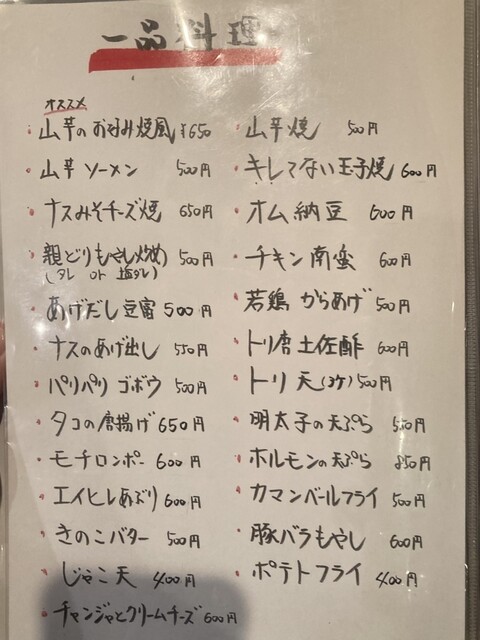 一品料理
オススメ
・山芋のお好み焼風 ¥650
・山芋ソーメン 500円
・ナスみそチーズ焼 650円
・親どりもやし炒め 500円
(タレ or 塩タレ)
・あげだし豆富 500円
・ナスのあげ出し 550円
・パリパリゴボウ 500円
・タコの唐揚げ 650円
・モチロンポー 600円
・エイヒレあぶり 600円
・きのこバター 500円
・じゃこ天 400円
・チャンジャとクリームチーズ 600円
・山芋焼 500円
・キレてない玉子焼 600円
・オム納豆 600円
・チキン南蛮 600円
・若鶏からあげ 500円
・トリ唐土佐酢 600円
・トリ天(3ケ) 500円
・明太子の天ぷら 550円
・ホルモンの天ぷら 850円
・カマンベールフライ 500円
・豚バラもやし 600円
・ポテトフライ 400円